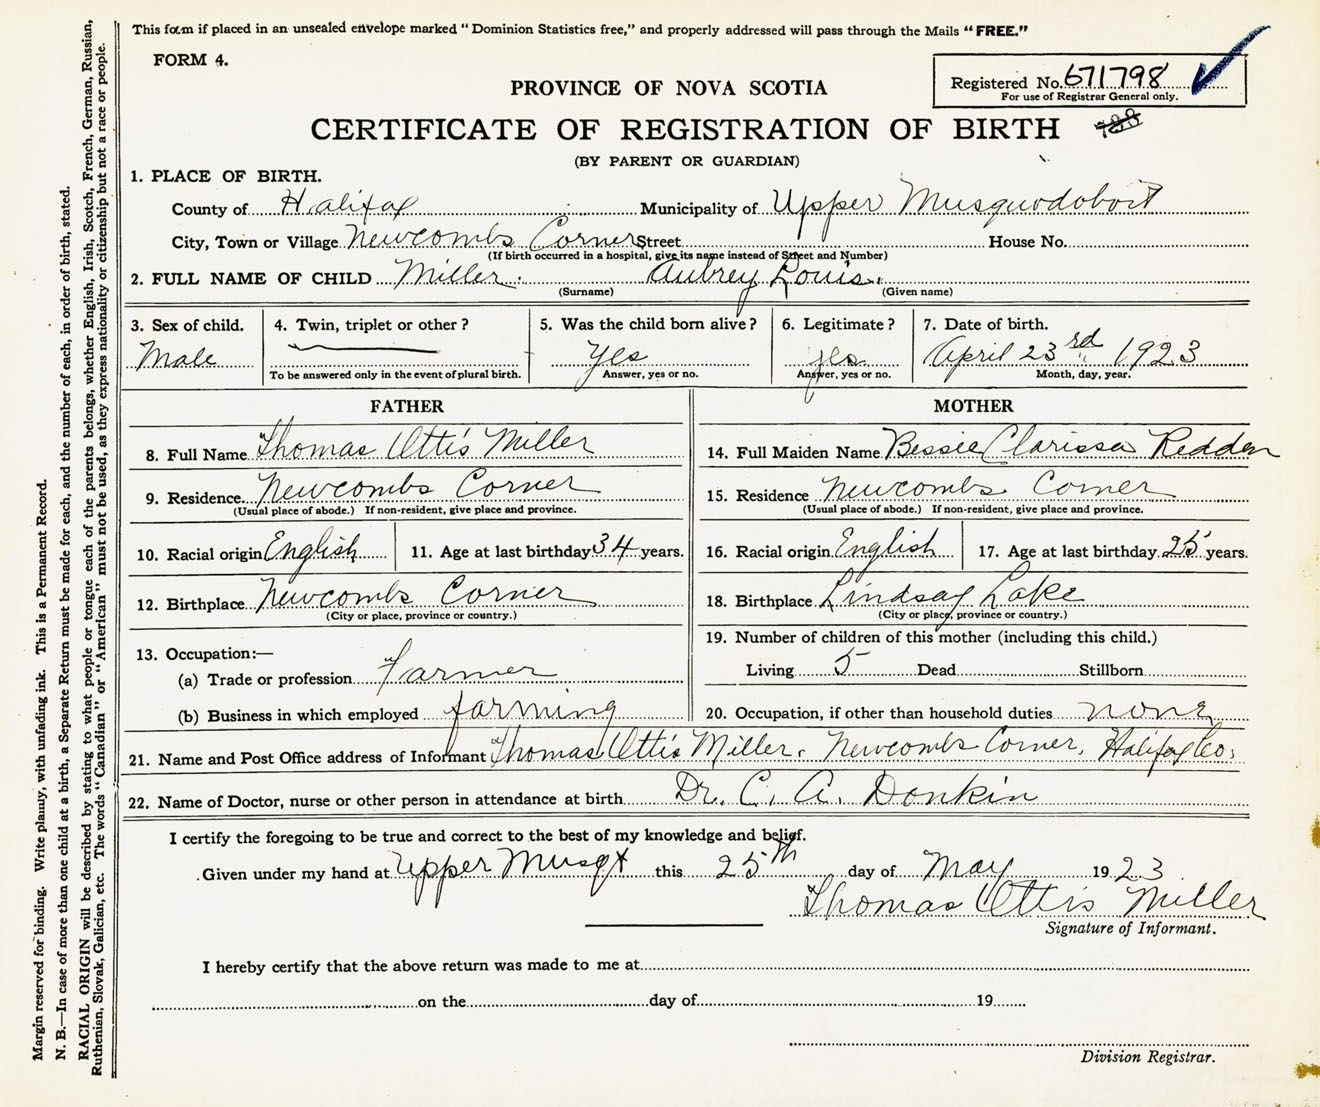 This form if placed in an unsealed envelope marked "Dominion Statistics free," and properly addressed will pass through the Mails "FREE."
FORM 4.
Registered No. 671798
For use of Registrar General only.
PROVINCE OF NOVA SCOTIA
CERTIFICATE OF REGISTRATION OF BIRTH
(BY PARENT OR GUARDIAN)
1. PLACE OF BIRTH.
County of Halifax Municipality of Upper Musquodoboit
City, Town or Village Newcombs Corner Street House No.
(If birth occurred in a hospital, give its name instead of Street and Number)
2. FULL NAME OF CHILD Miller. Aubrey Louis.
(Surname) (Given name)
3. Sex of child. 4. Twin, triplet or other? 5. Was the child born alive? 6. Legitimate? 7. Date of birth.
Male Yes yes April 23rd 1923
To be answered only in the event of plural birth. Answer, yes or no. Answer, yes or no. Month, day, year.
FATHER
8. Full Name Thomas Ottis Miller
9. Residence Newcombs Corner
(Usual place of abode.) If non-resident, give place and province.
10. Racial origin English 11. Age at last birthday 34 years.
12. Birthplace Newcombs Corner
(City or place, province or country.)
13. Occupation:—
(a) Trade or profession Farmer
(b) Business in which employed farming
MOTHER
14. Full Maiden Name Bessie Clarissa Redden
15. Residence Newcombs Corner
(Usual place of abode.) If non-resident, give place and province.
16. Racial origin English 17. Age at last birthday 25 years.
18. Birthplace Lindsay Lake
(City or place, province or country.)
19. Number of children of this mother (including this child.)
Living 5 Dead Stillborn
20. Occupation, if other than household duties none
21. Name and Post Office address of Informant Thomas Ottis Miller. Newcombs Corner, Halifax Co.
22. Name of Doctor, nurse or other person in attendance at birth Dr. C. A. Donkin
I certify the foregoing to be true and correct to the best of my knowledge and belief.
Given under my hand at Upper Musqt this 25th day of May 1923
Thomas Ottis Miller
Signature of Informant.
I hereby certify that the above return was made to me at
on the day of 19
Division Registrar.
Margin reserved for binding. Write plainly, with unfading ink. This is a Permanent Record.
N. B.—In case of more than one child at a birth, a Separate Return must be made for each, and the number of each, in order of birth, stated.
RACIAL ORIGIN will be described by stating to what people or tongue each of the parents belongs, whether English, Irish, Scotch, French, German, Russian,
Ruthenian, Slovak, Galician, etc. The words "Canadian" or "American" must not be used, as they express nationality or citizenship but not a race or people.